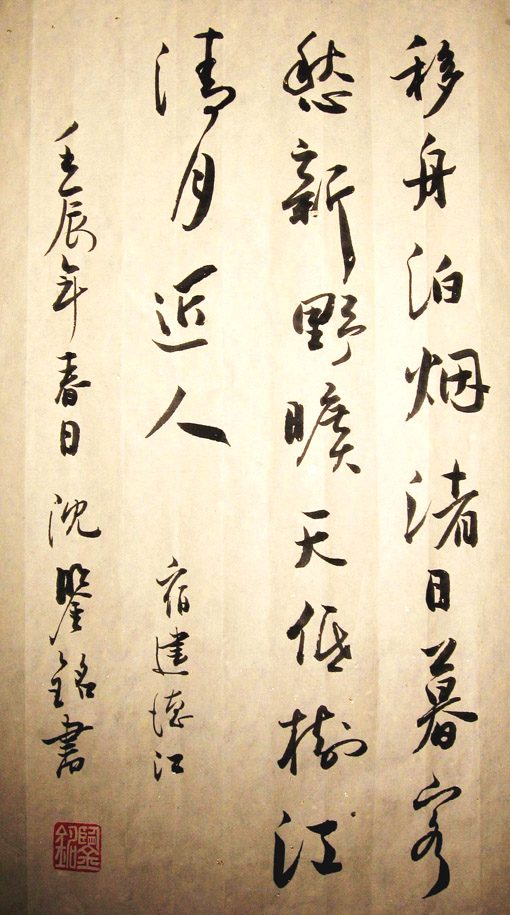 移舟泊烟渚日暮客
愁新野曠天低樹江
清月近人
宿建德江
壬辰年春日沈鑒銘書
鑒銘